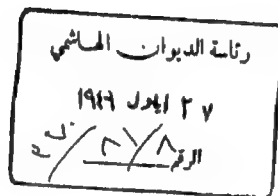 رئاسة الديوان الهاشمي
٢٧ ايلول ١٩٤٦
الرقم ٨/٢١/